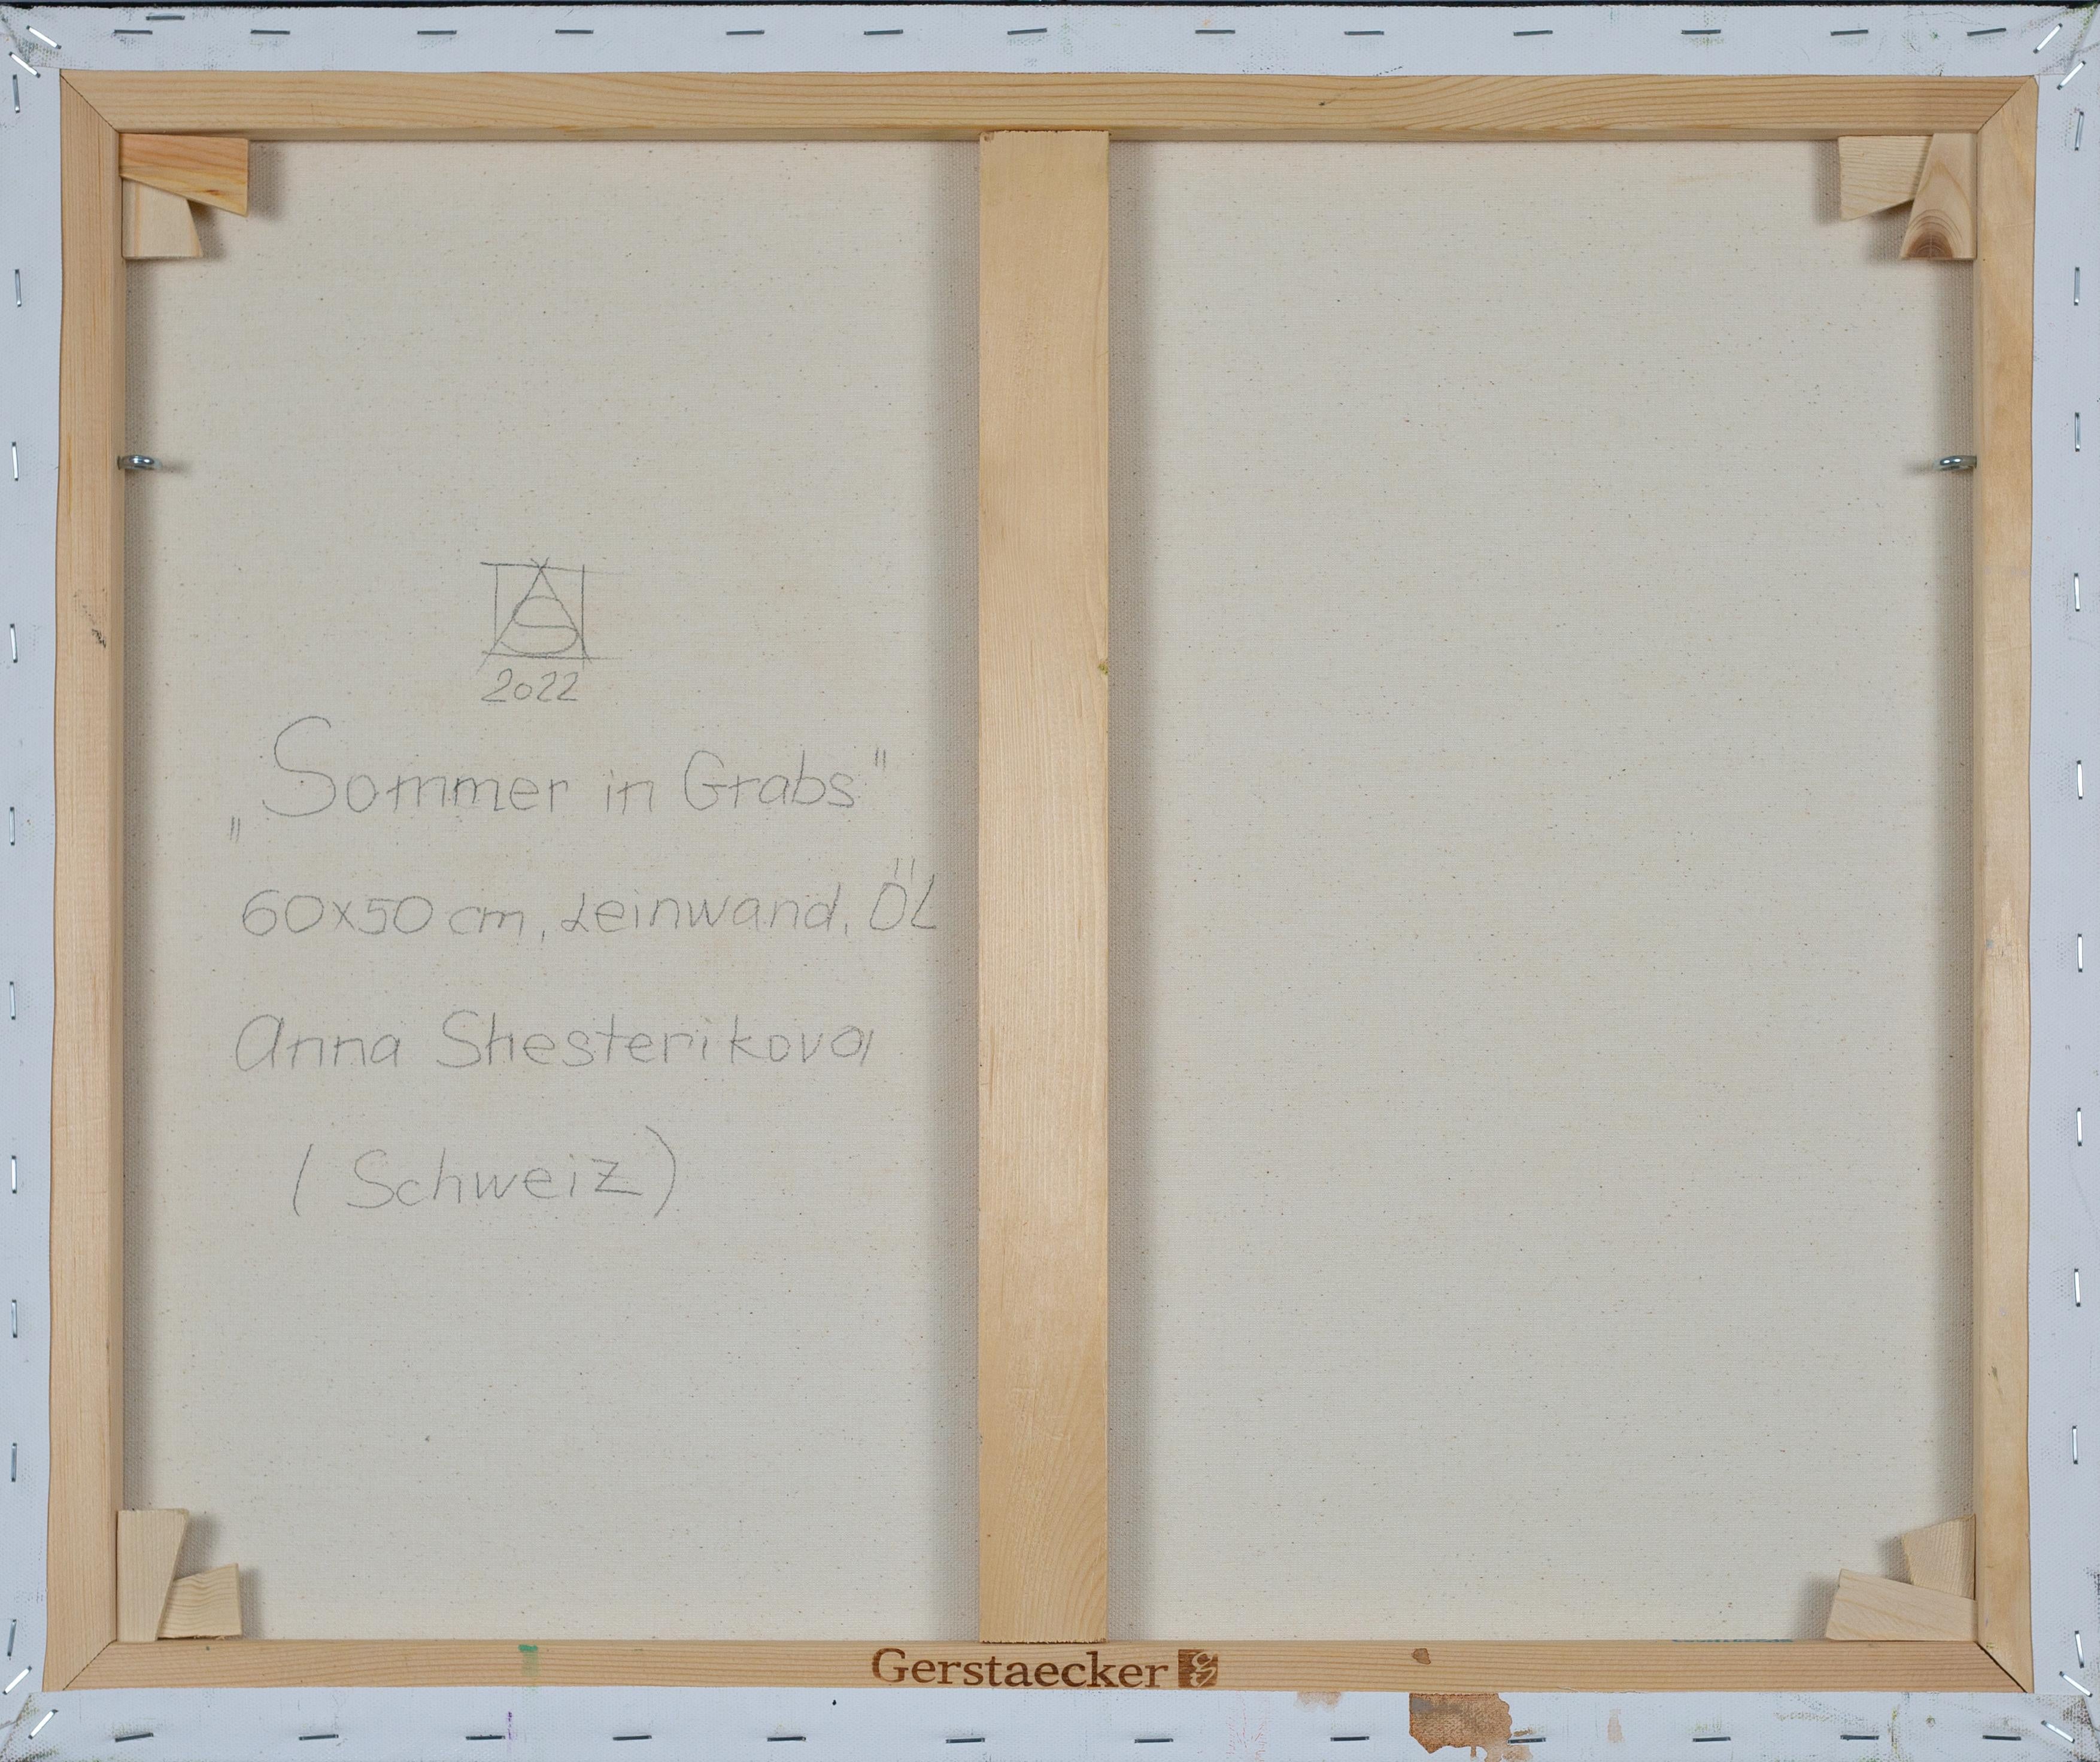 AS
2022
„Sommer in Grabs"
60x50 cm, Leinwand, ÖL
Anna Shesterikova
(Schweiz)
Gerstaecker